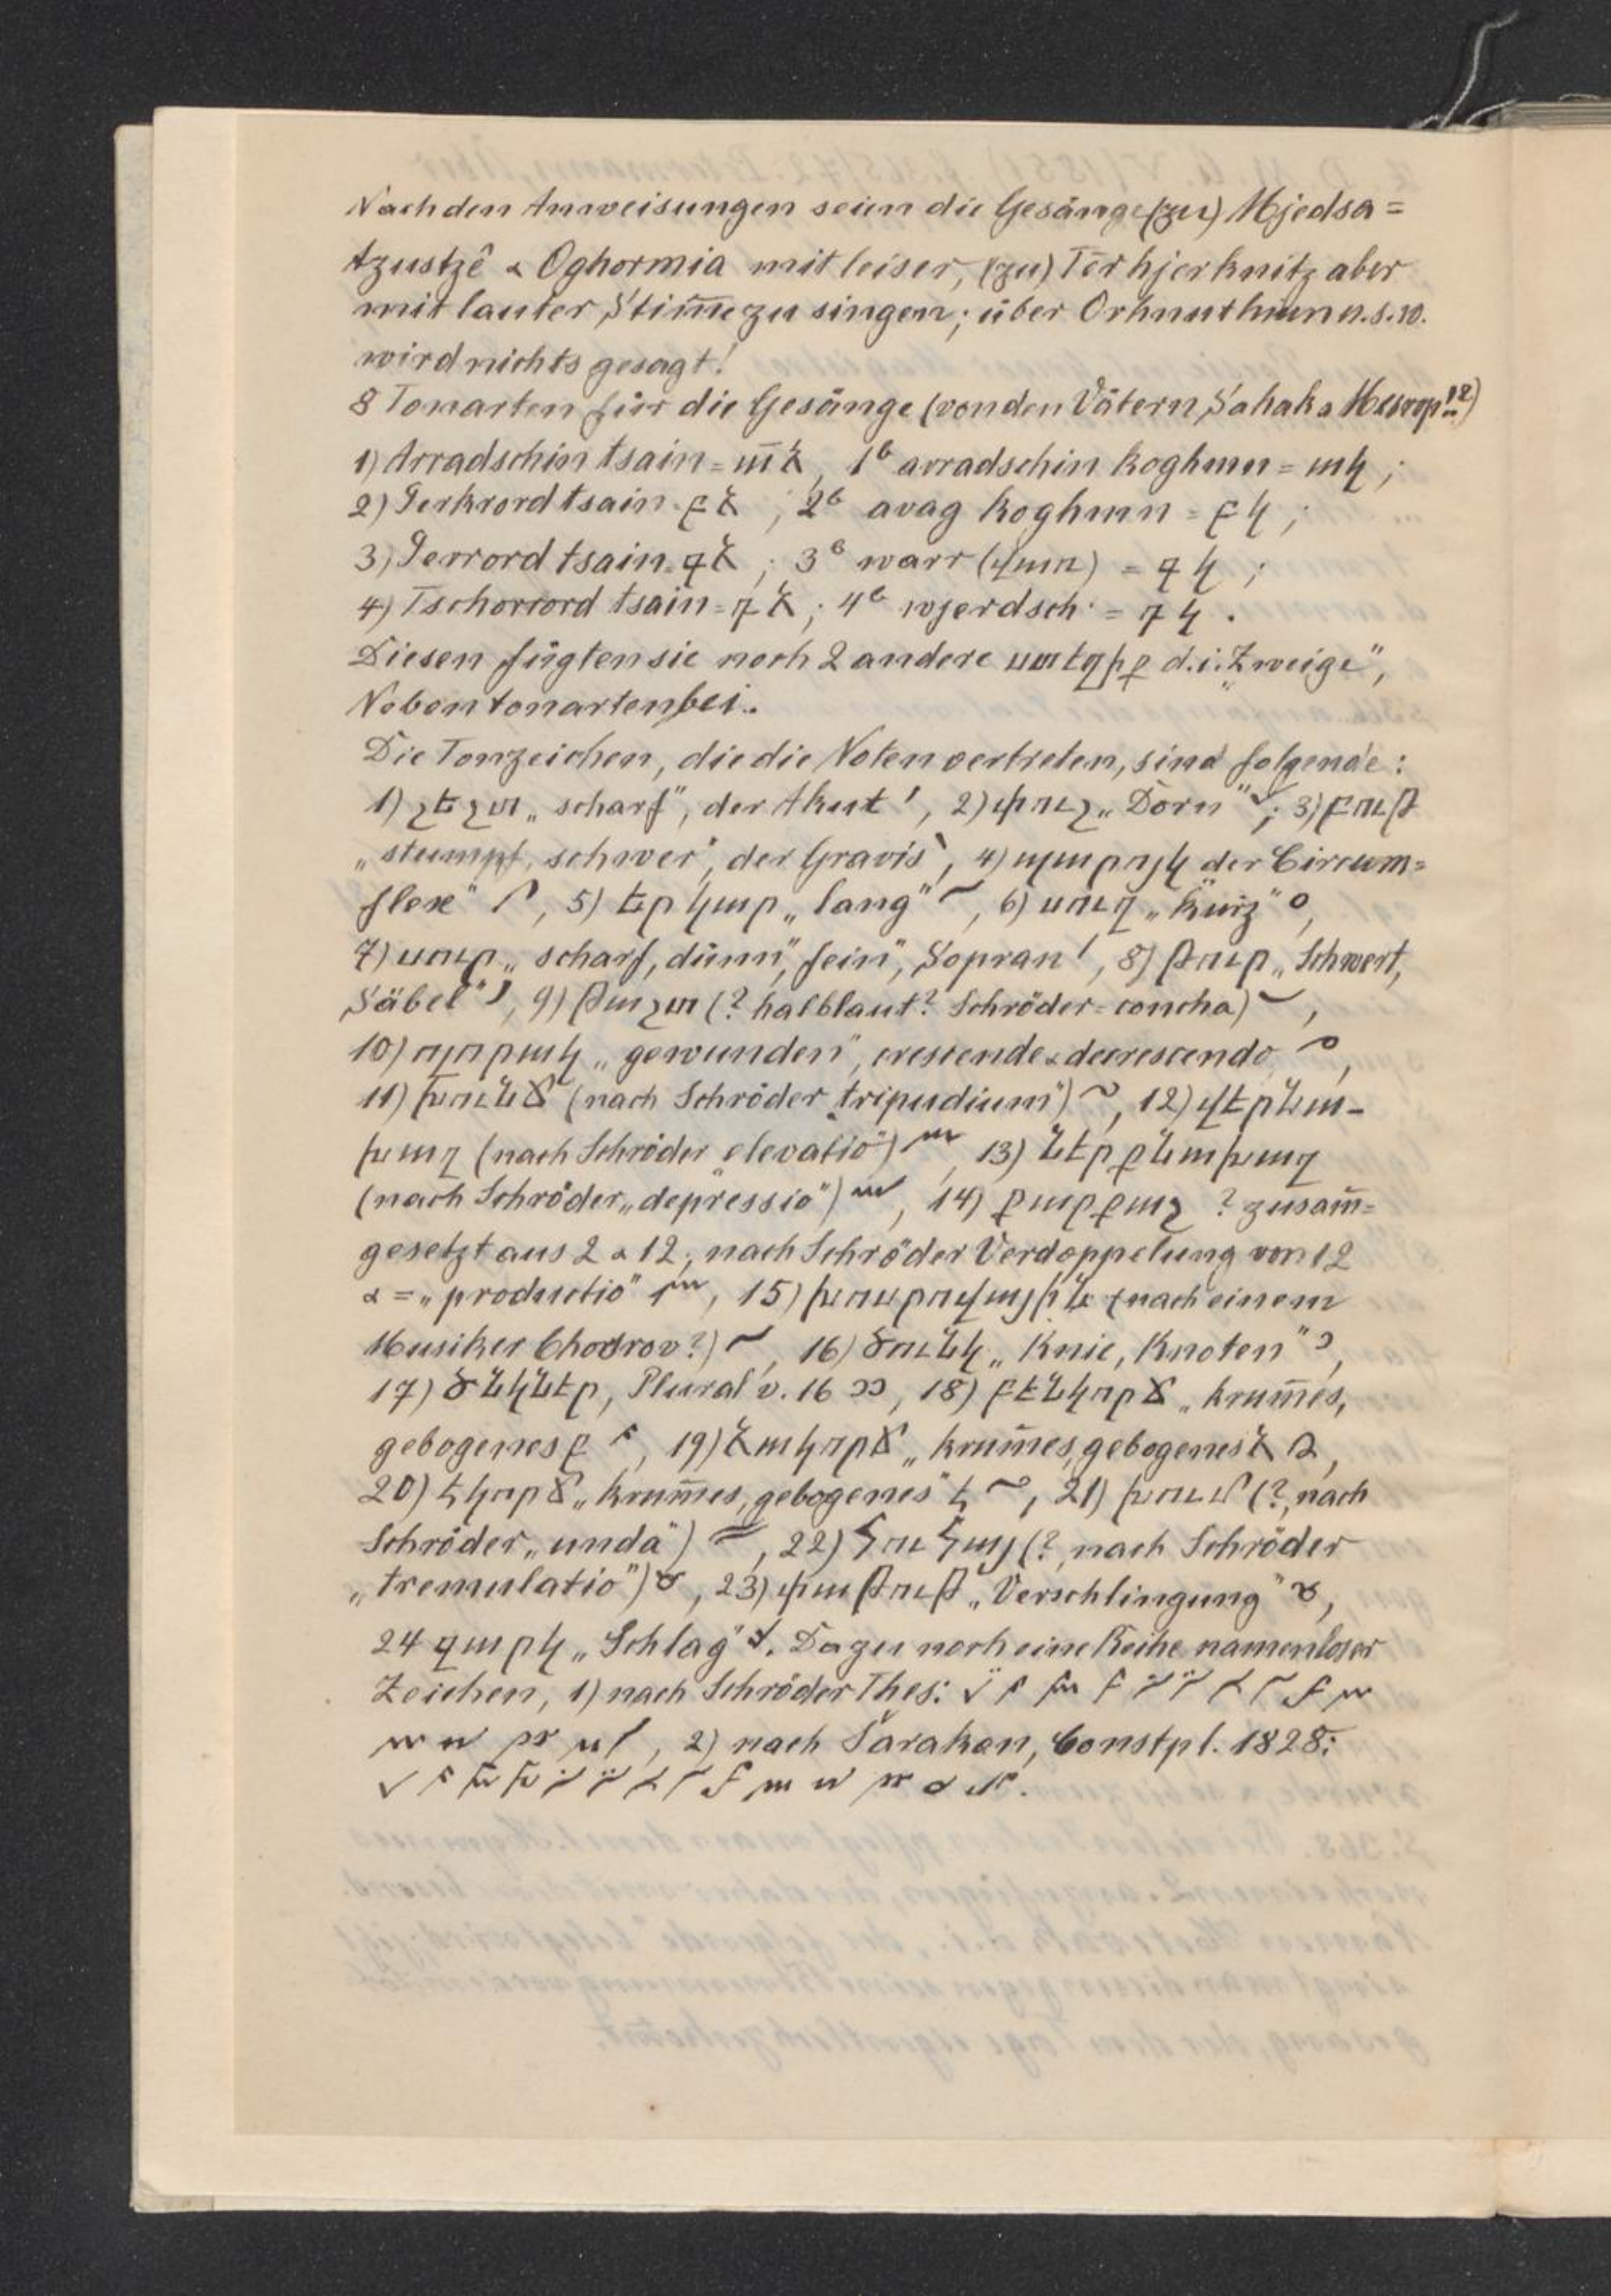 Nach den Anweisungen seien die Gesänge (zu) Mjedsa=
tzustzê & Oghormia mit leiser, (zu) Tērhjerknitz aber
mit lauter Stim̄e zu singen; über Orhnuthiun u.s.w.
wird nichts gesagt!
8 Tonarten für die Gesänge (von den Vätern Sahak & Mesrop!?)
1) Arradschin tsain = ա̅ձ, 1b arradschin koghmn = ակ;
2) Jerkrord tsain = բձ; 2b avag koghmn = բկ;
3) Jerrord tsain = գձ; 3b warr (վառ) = գկ;
4) Tschorrord tsain = դձ; 4b wjerdsch = դկ.
Diesen fügten sie noch 2 andere ստեղիք d.i. „Zweige",
Nebentonarten bei.
Die Tonzeichen, die die Noten vertreten, sind folgende:
1) շեշտ „scharf", der Akut ՛, 2) փուշ „Dorn" ; 3) բութ
„stumpf, schwer", der Gravis ՝, 4) պարոյկ der Circum=
flex" , 5) երկար „lang" , 6) սուղ „kurz" ,
7) սուր „scharf, dünn, fein", Sopran , 8) թուր „Schwert,
Säbel" , 9) թաշտ (? halblaut? Schröder = concha) ,
10) ոլորակ „gewunden", crescendo & decrescendo ,
11) խունճ (nach Schröder „tripudium") , 12) վերնա-
խաղ (nach Schröder „elevatio") , 13) ներքնախաղ
(nach Schröder „depressio") , 14) քարքաշ ? zusam̄=
gesetzt aus 2 & 12; nach Schröder Verdoppelung von 12
& = „productio" , 15) խոսրովային (nach einem
Musiker Chosrov?) , 16) ծունկ „Knie, Knoten" ,
17) ծնկներ, Plural v. 16 , 18) բենկորճ „krum̄es,
gebogenes բ , 19) ձակորճ „krum̄es, gebogenes ձ ,
20) էկորճ „krum̄es, gebogenes" է , 21) խում (?, nach
Schröder „unda") , 22) հուհայ (?, nach Schröder
„tremulatio") , 23) փաթութ „Verschlingung" ,
24 զարկ „Schlag" . Dazu noch eine Reihe namenloser
Zeichen, 1) nach Schröder Thes:
, 2) nach Šarakan, Constpl. 1828: